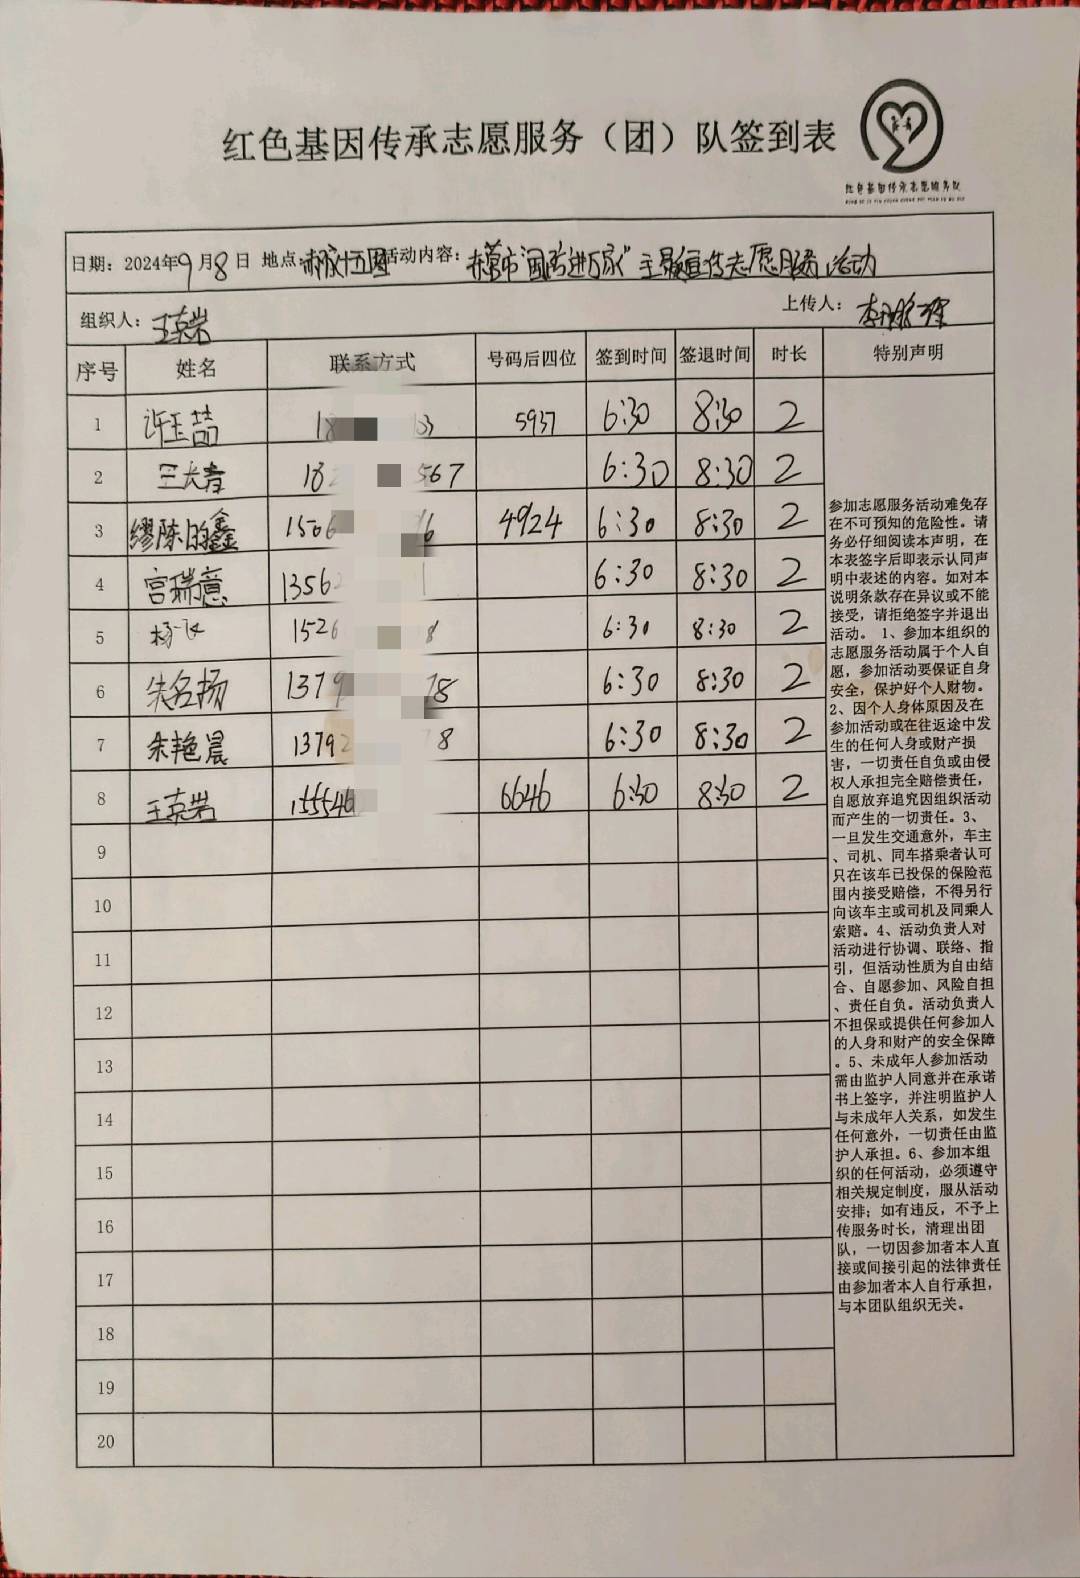 红色基因传承志愿服务（团）队签到表
红色基因传承志愿服务队
日期：2024年9月8日 地点： 活动内容： 东营市"国 进万家"主题宣传志愿服务活动
组织人：王英岩 上传人：李
序号 姓名 联系方式 号码后四位 签到时间 签退时间 时长 特别声明
1 许玉喆 18 33 5937 6:30 8:30 2
2 王大青 182 567 6:30 8:30 2
3 缪陈 鑫 1506 6 4924 6:30 8:30 2
4 宫瑞意 13562 1 6:30 8:30 2
5 杨飞 1526 8 6:30 8:30 2
6 朱名扬 1379 78 6:30 8:30 2
7 朱艳晨 13792 8 6:30 8:30 2
8 王英岩 155546 6646 6:30 8:30 2
9
10
11
12
13
14
15
16
17
18
19
20
参加志愿服务活动难免存
在不可预知的危险性。请
务必仔细阅读本声明，在
本表签字后即表示认同声
明中表述的内容。如对本
说明条款存在异议或不能
接受，请拒绝签字并退出
活动。 1、参加本组织的
志愿服务活动属于个人自
愿，参加活动要保证自身
安全，保护好个人财物。
2、因个人身体原因及在
参加活动或在往返途中发
生的任何人身或财产损
害，一切责任自负或由侵
权人承担完全赔偿责任，
自愿放弃追究因组织活动
而产生的一切责任。3、
一旦发生交通意外，车主
、司机、同车搭乘者认可
只在该车已投保的保险范
围内接受赔偿，不得另行
向该车主或司机及同乘人
索赔。4、活动负责人对
活动进行协调、联络、指
引，但活动性质为自由结
合、自愿参加、风险自担
、责任自负。活动负责人
不担保或提供任何参加人
的人身和财产的安全保障
。5、未成年人参加活动
需由监护人同意并在承诺
书上签字，并注明监护人
与未成年人关系，如发生
任何意外，一切责任由监
护人承担。6、参加本组
织的任何活动，必须遵守
相关规定制度，服从活动
安排；如有违反，不予上
传服务时长，清理出团
队，一切因参加者本人直
接或间接引起的法律责任
由参加者本人自行承担，
与本团队组织无关。